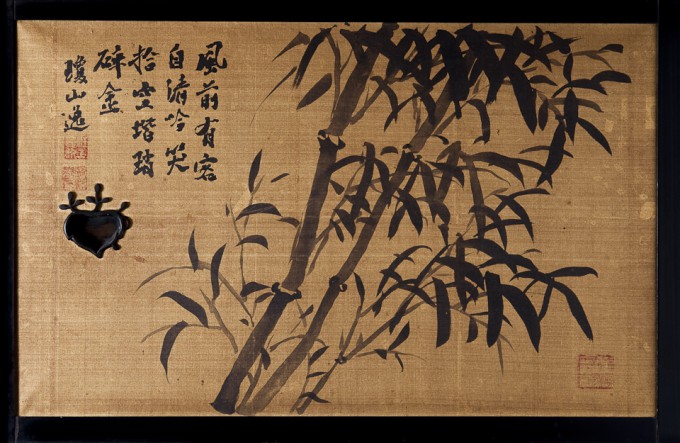 風前有客
自清吟笑
拾空堦踏
碎金
瓊山逸